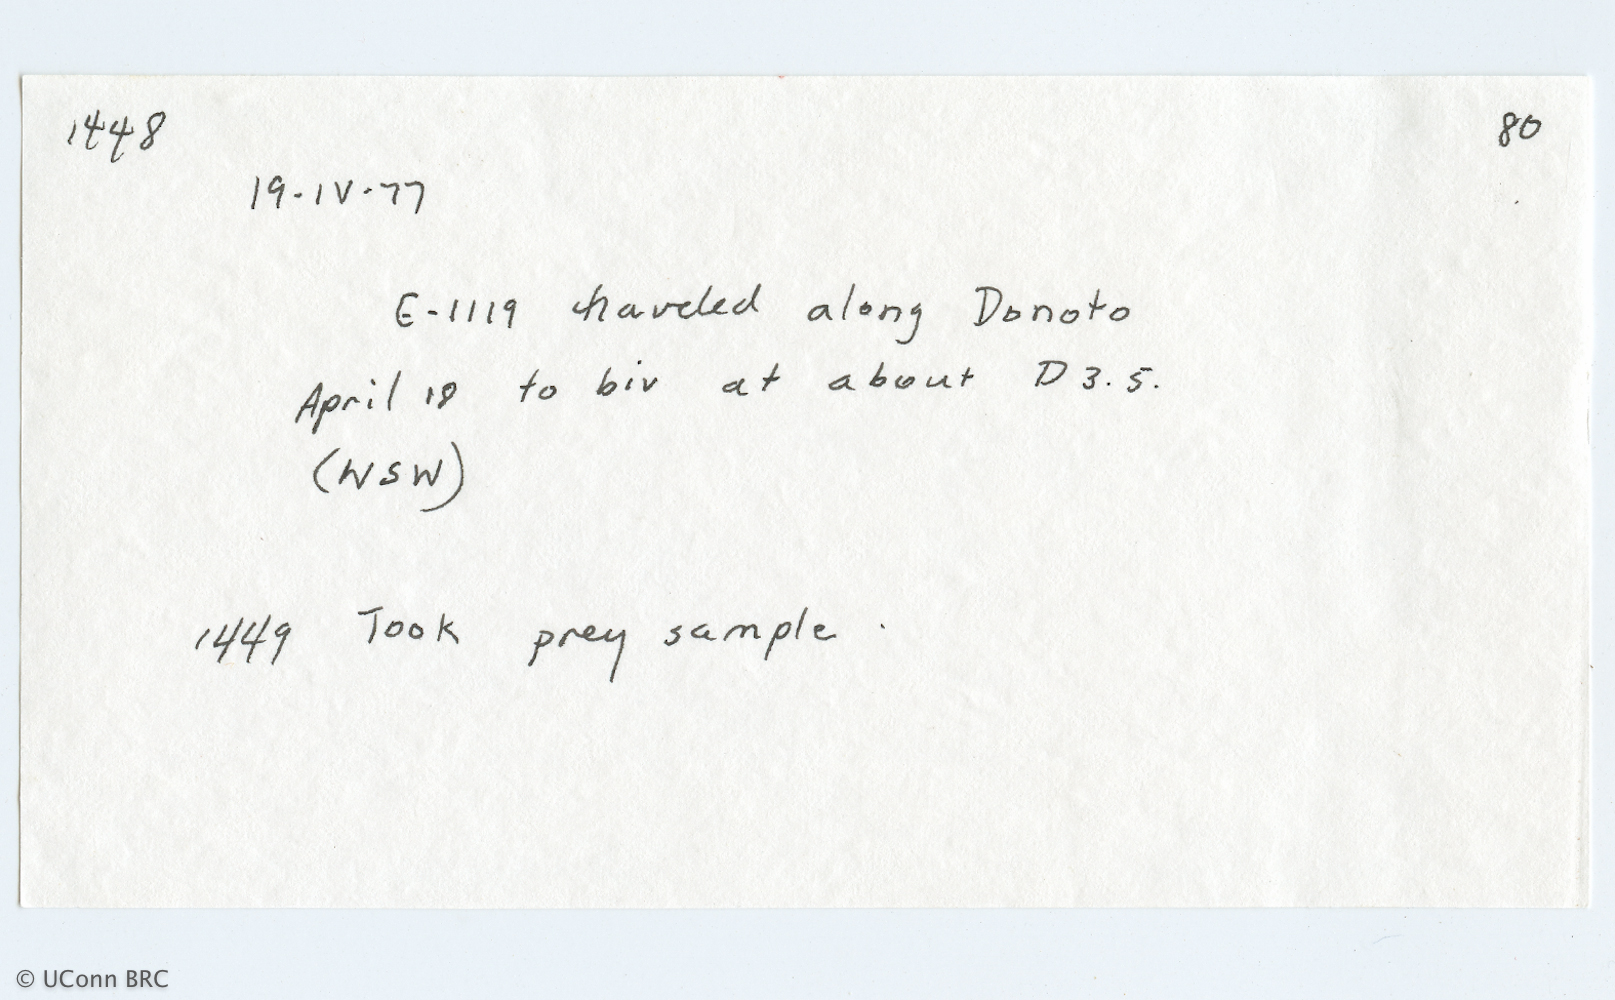 1448
80
19-IV-77
E-1119 traveled along Donoto
April 18 to biv at about D 3.5.
(WSW)
1449 Took prey sample.
© UConn BRC